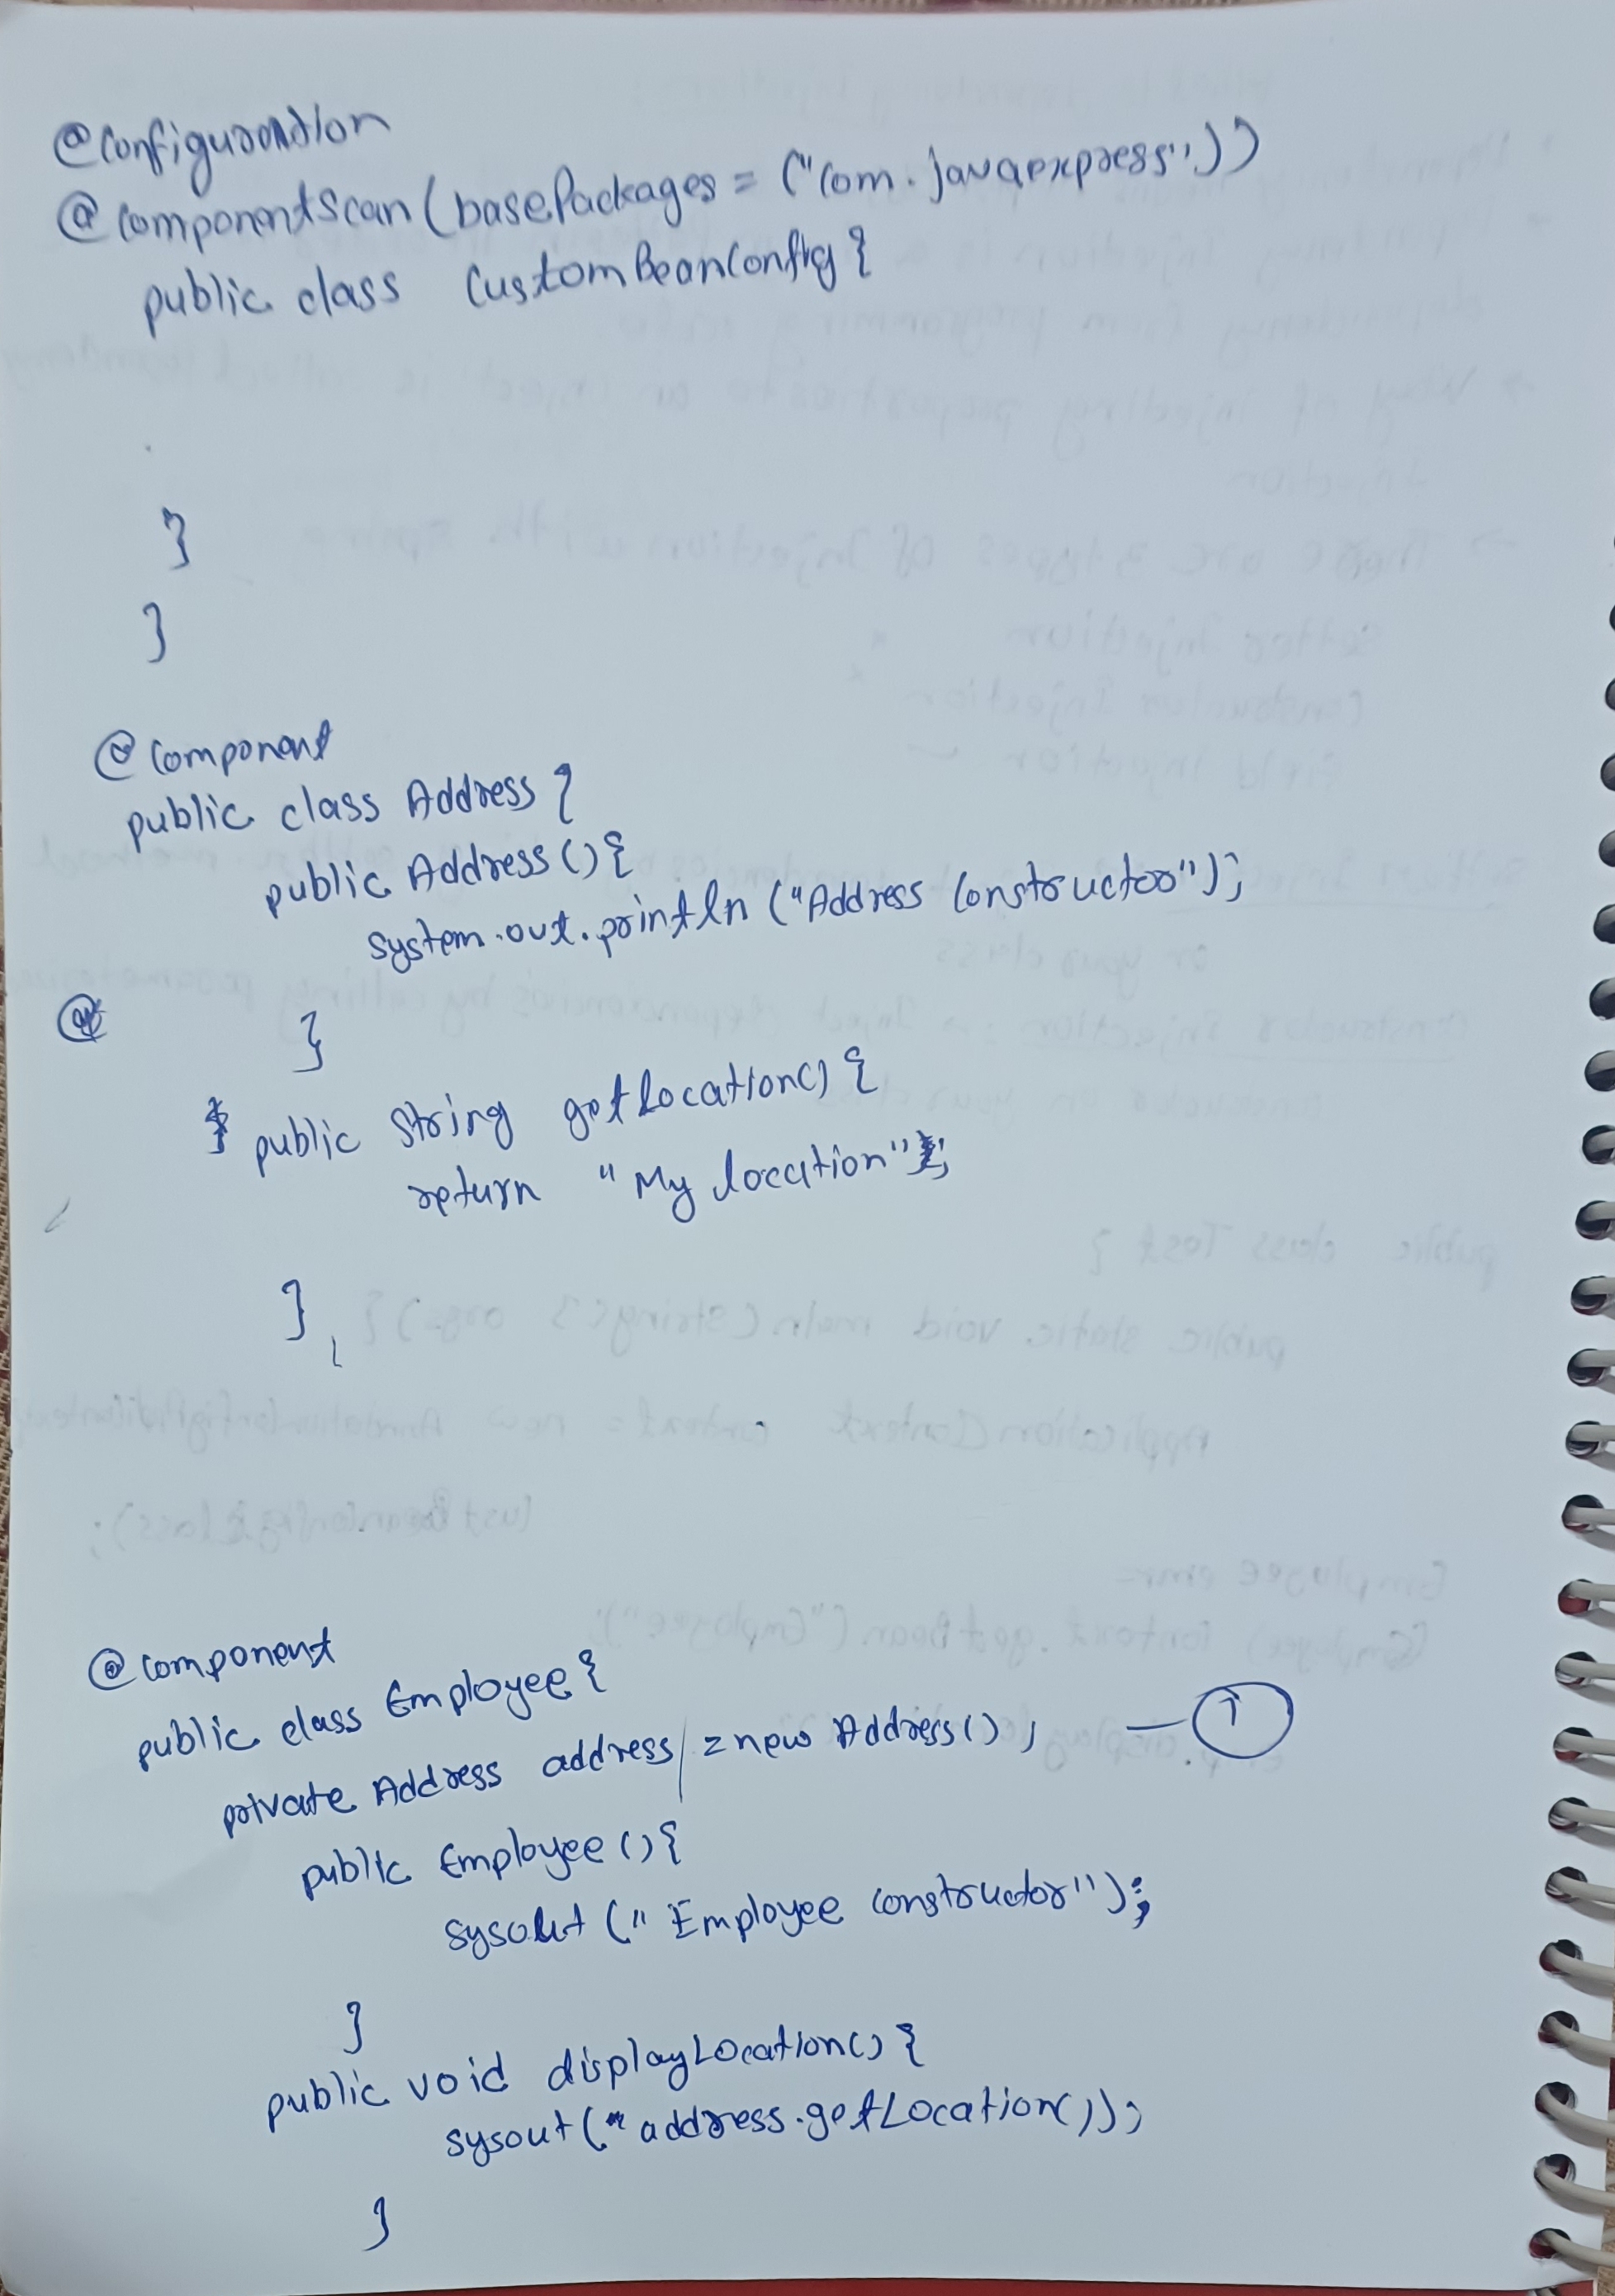 @Configuration
@ComponentScan(basePackages = ("com.javaexpress"))
public class CustomBeanConfig {
}
}
@Component
public class Address {
public Address () {
system.out.println ("Address Constructor");
}
public String getLocation() {
return "My location";
}
@Component
public class Employee {
private Address address = new Address() ; — 1
public Employee () {
sysout (" Employee constructor");
}
public void displayLocation() {
sysout (" address.getLocation());
}